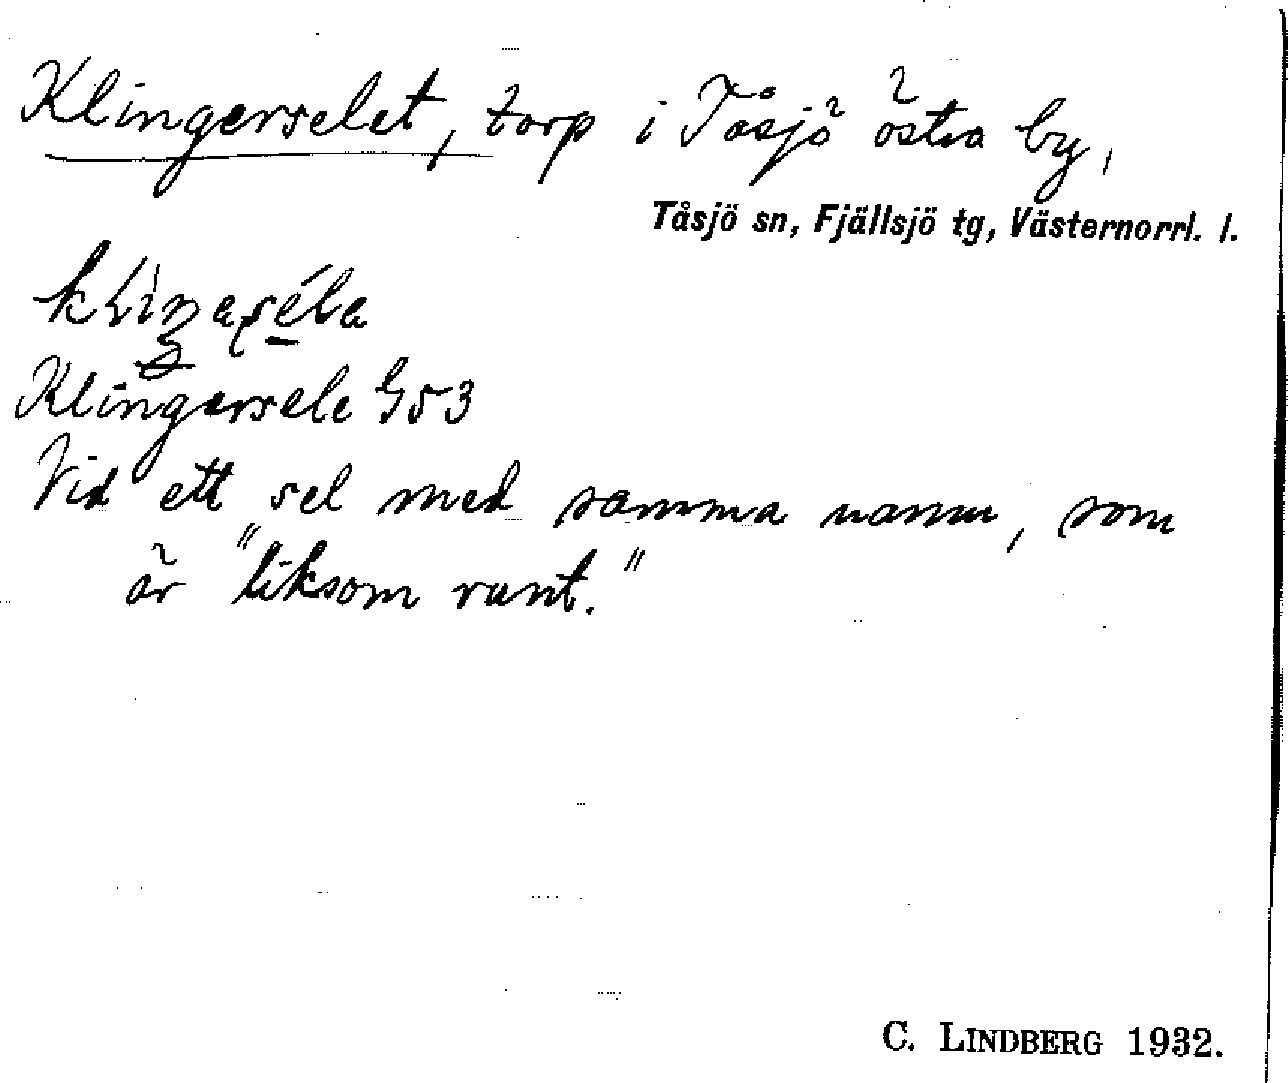 Klingerselet, torp i Tåsjö östra by,
Tåsjö sn, Fjällsjö tg, Västernorrl. l.
Klingersele G53
Vid ett sel med samma namn, som
är "liksom runt."
C. LINDBERG 1932.